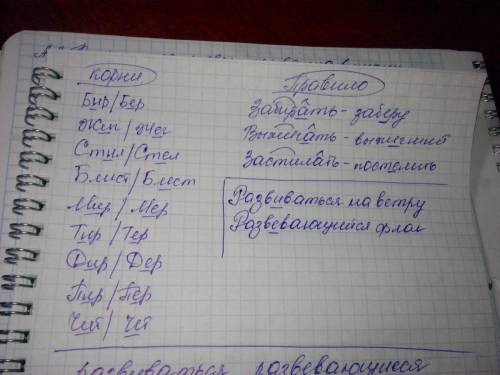 Корни
Бир/Бер
Жиг/Жег
Стил/Стел
Блист/Блест
Мир/Мер
Тир/Тер
Дир/Дер
Пир/Пер
Чит/Чет
Правило
Забирать - заберу
Выжигать -
Застилать - постелить
Развиваться на ветру
Развевающийся флаг
развиваться развевающиеся